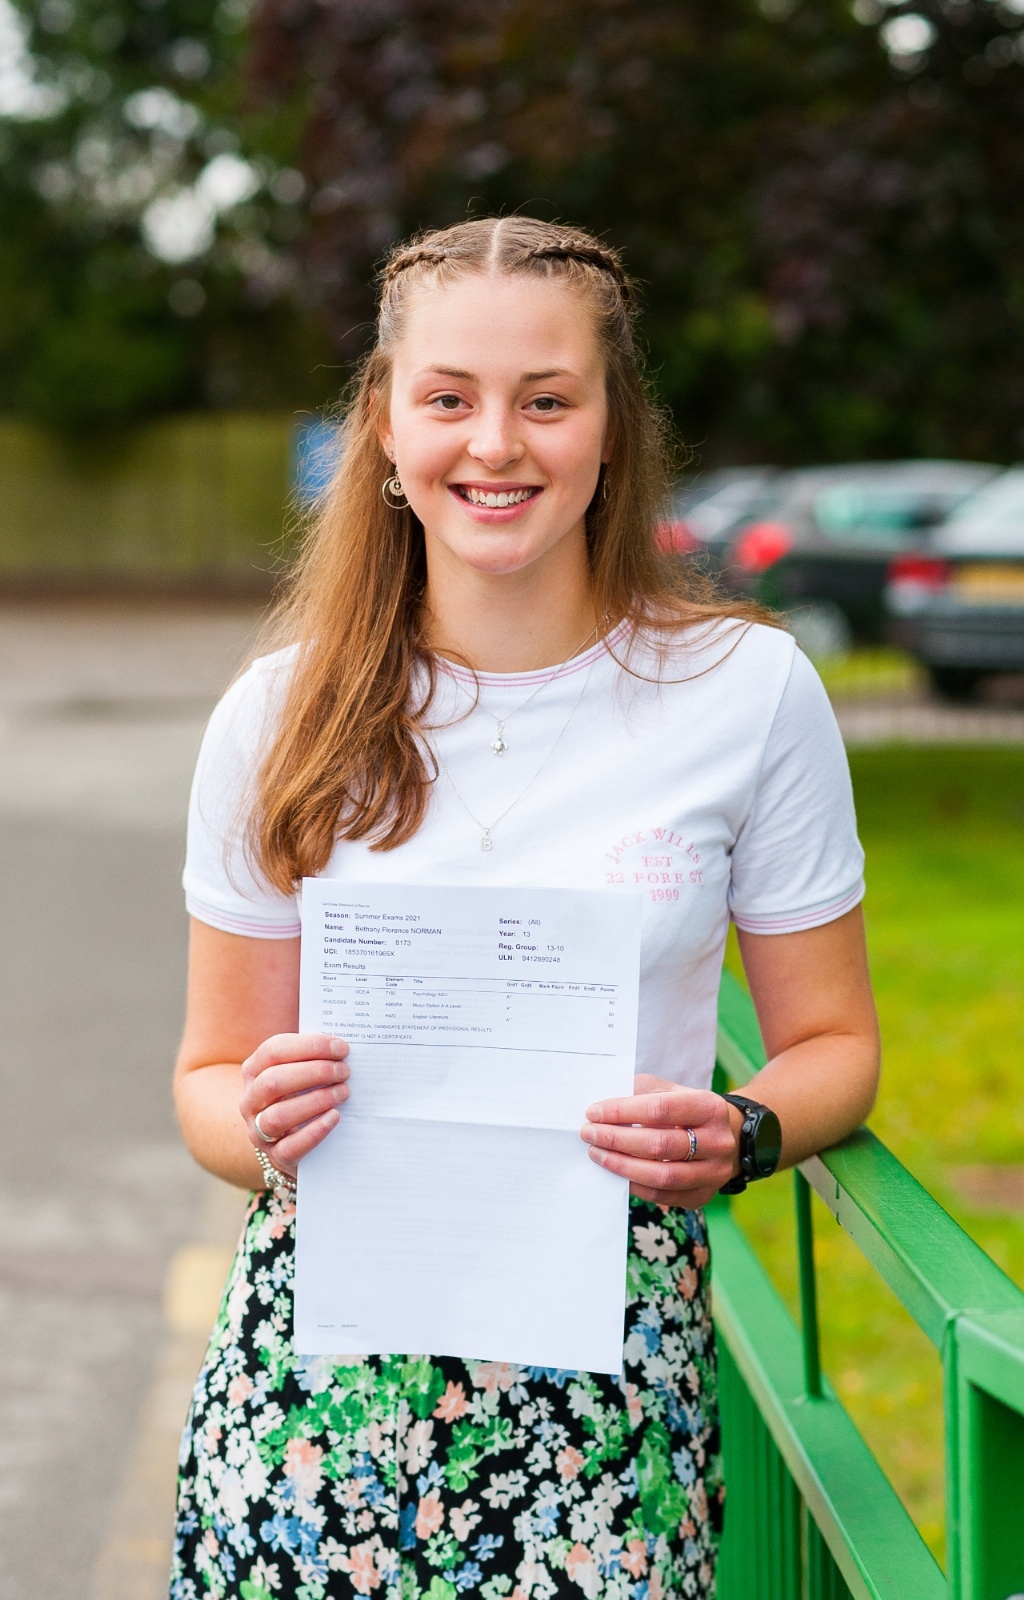 JACK WILLS
EST
22 FORE ST
1999
Candidate Statement of Results
Season: Summer Exams 2021
Name: Bethany Florence NORMAN
Candidate Number: 8173
UCI: 185370161965X
Series: (All)
Year: 13
Reg. Group: 13-10
ULN: 9412890248
Exam Results
Board Level Element Code Title Grd1 Grd2 Mark Equiv Points
AQA GCE/A 7182 Psychology ADV A* 60
GCE/A Music Option A A Level A* 60
OCR GCE/A H472 English Literature A* 60
THIS IS AN INDIVIDUAL CANDIDATE STATEMENT OF PROVISIONAL RESULTS
THIS DOCUMENT IS NOT A CERTIFICATE
B